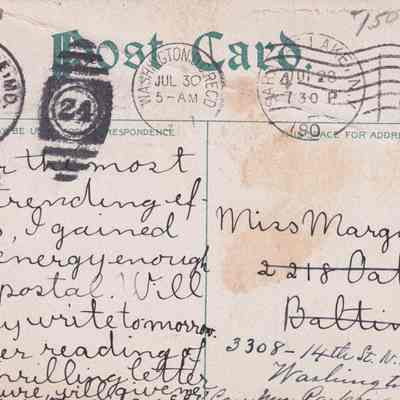 750
Post Card.
MD.
24
WASHINGTON
REC'D
JUL 30
5-AM
LAKE, N.Y.
JUL 28
730 P
190
BE US
RESPONDENCE
THIS SPACE FOR ADDRE
r the most
trending ef-
s, I gained
energy enough
postal. Will
y write to-morrow.
er reading of
hrilling letter
ure, will give me
Miss Marg
2218 Oa
Baltim
3308-14th St. N.
Washingto